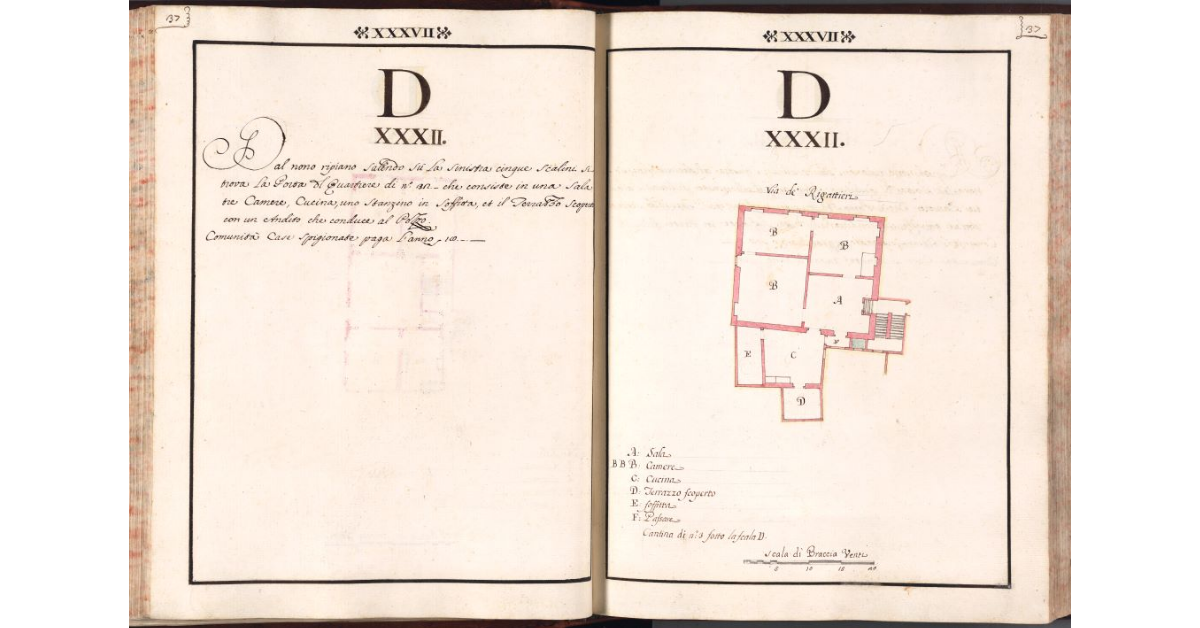 37
XXXVII
D
XXXII.
Dal nono ripiano salendo sù la sinistra cinque scalini si
trova La Porta del Quartiere di n.° 41 che consiste in una Sala
tre Camere, Cucina, uno Stanzino in Soffitta, et il Terrazzo Scoperto
con un Andito che conduce al Pozzo.
Comunità Case Spigionate paga L'anno
37
XXXVII
D
XXXII.
Via de' Rigattieri
B
B
B
A
E
C
F
D
A: Sala
B B B: Camere
C: Cucina
D: Terrazzo scoperto
E: Soffitta
F:
Cantina di n.° sotto la scala D.
Scala di Braccia Venti
10